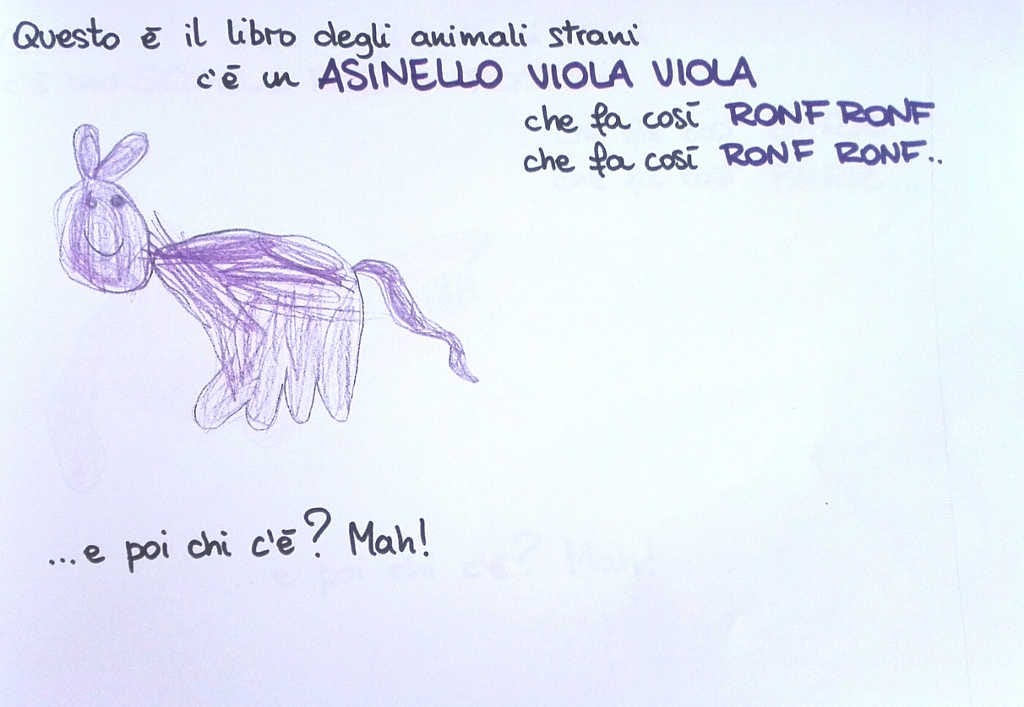 Questo ē il libro degli animali strani
c'ē un ASINELLO VIOLA VIOLA
che fa cosī RONF RONF
che fa cosī RONF RONF..
...e poi chi c'ē? Mah!